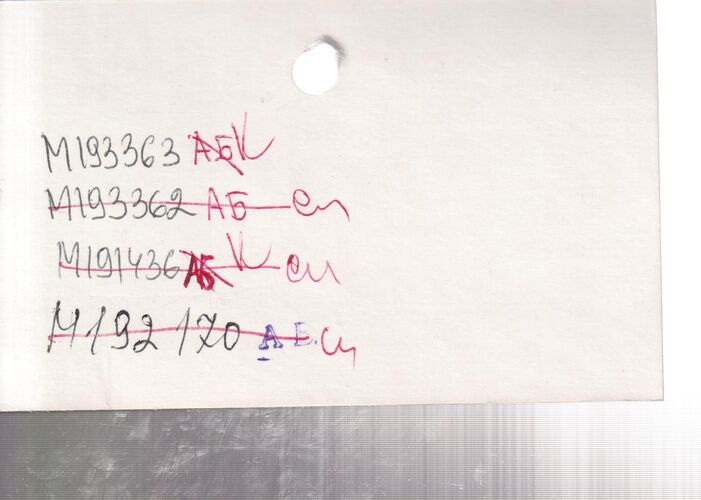 М193363 АБК
М193362 АБ сп
М191436 АБ К сп
М192170 А Б. сп